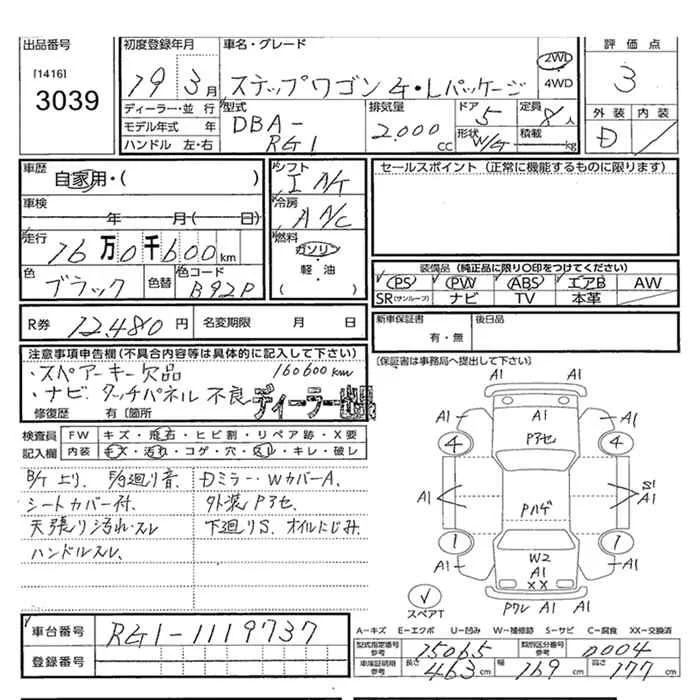 出品番号
[1416]
3039
初度登録年月
19年 3月
車名・グレード
ステップワゴン G・Lパッケージ
2WD
4WD
評価点
3
外装 内装
D
ディーラー・並行
モデル年式 年
ハンドル 左・右
型式
DBA-
RG1
排気量
2.000 cc
ドア
5
定員
8人
形状
W/G
積載
kg
車歴
自家用・( )
シフト
I A/T
セールスポイント (正常に機能するものに限ります)
車検
年 月( 日)
冷房
A A/C
走行
16万0千600km
燃料
ガソリン
・
軽・油
( )
色
ブラック
色替
色コード
B92P
装備品 (純正品に限り〇印をつけてください)
PS PW ABS エアB AW
SR(サンルーフ) ナビ TV 本革
R券 12,480円 名変期限 月 日
新車保証書
有・無
後日品
注意事項申告欄(不具合内容等は具体的に記入して下さい)
・スペアーキー欠品 160600km
・ナビ.タッチパネル不良 ディーラー出品
修復歴 有〔箇所
〔保証書は事務局へ提出して下さい〕
検査員 FW キズ・飛石・ヒビ割・リペア跡・X要
記入欄 内装 キズ・汚れ・コゲ・穴・スレ・キレ・破レ
シートカバー付.
天張り汚れ・スレ
ハンドルスレ.
Dミラー・WカバーA.
外装Pアセ
下廻りS. オイルにじみ.
A1
A1
A1
A1
Pアセ
4
4
A1
A1
Pハゲ
1
1
A1
A1
W2
A1
XX
A1
スペアT
車台番号 RG1-1119737
登録番号
A-キズ E-エクボ U-凹み W-補修跡 S-サビ C-腐食 XX-交換済
型式指定番号 参考 15065 類別区分番号 参考 0004
車庫証明用 参考 長さ 463cm 幅 169cm 高さ 177cm